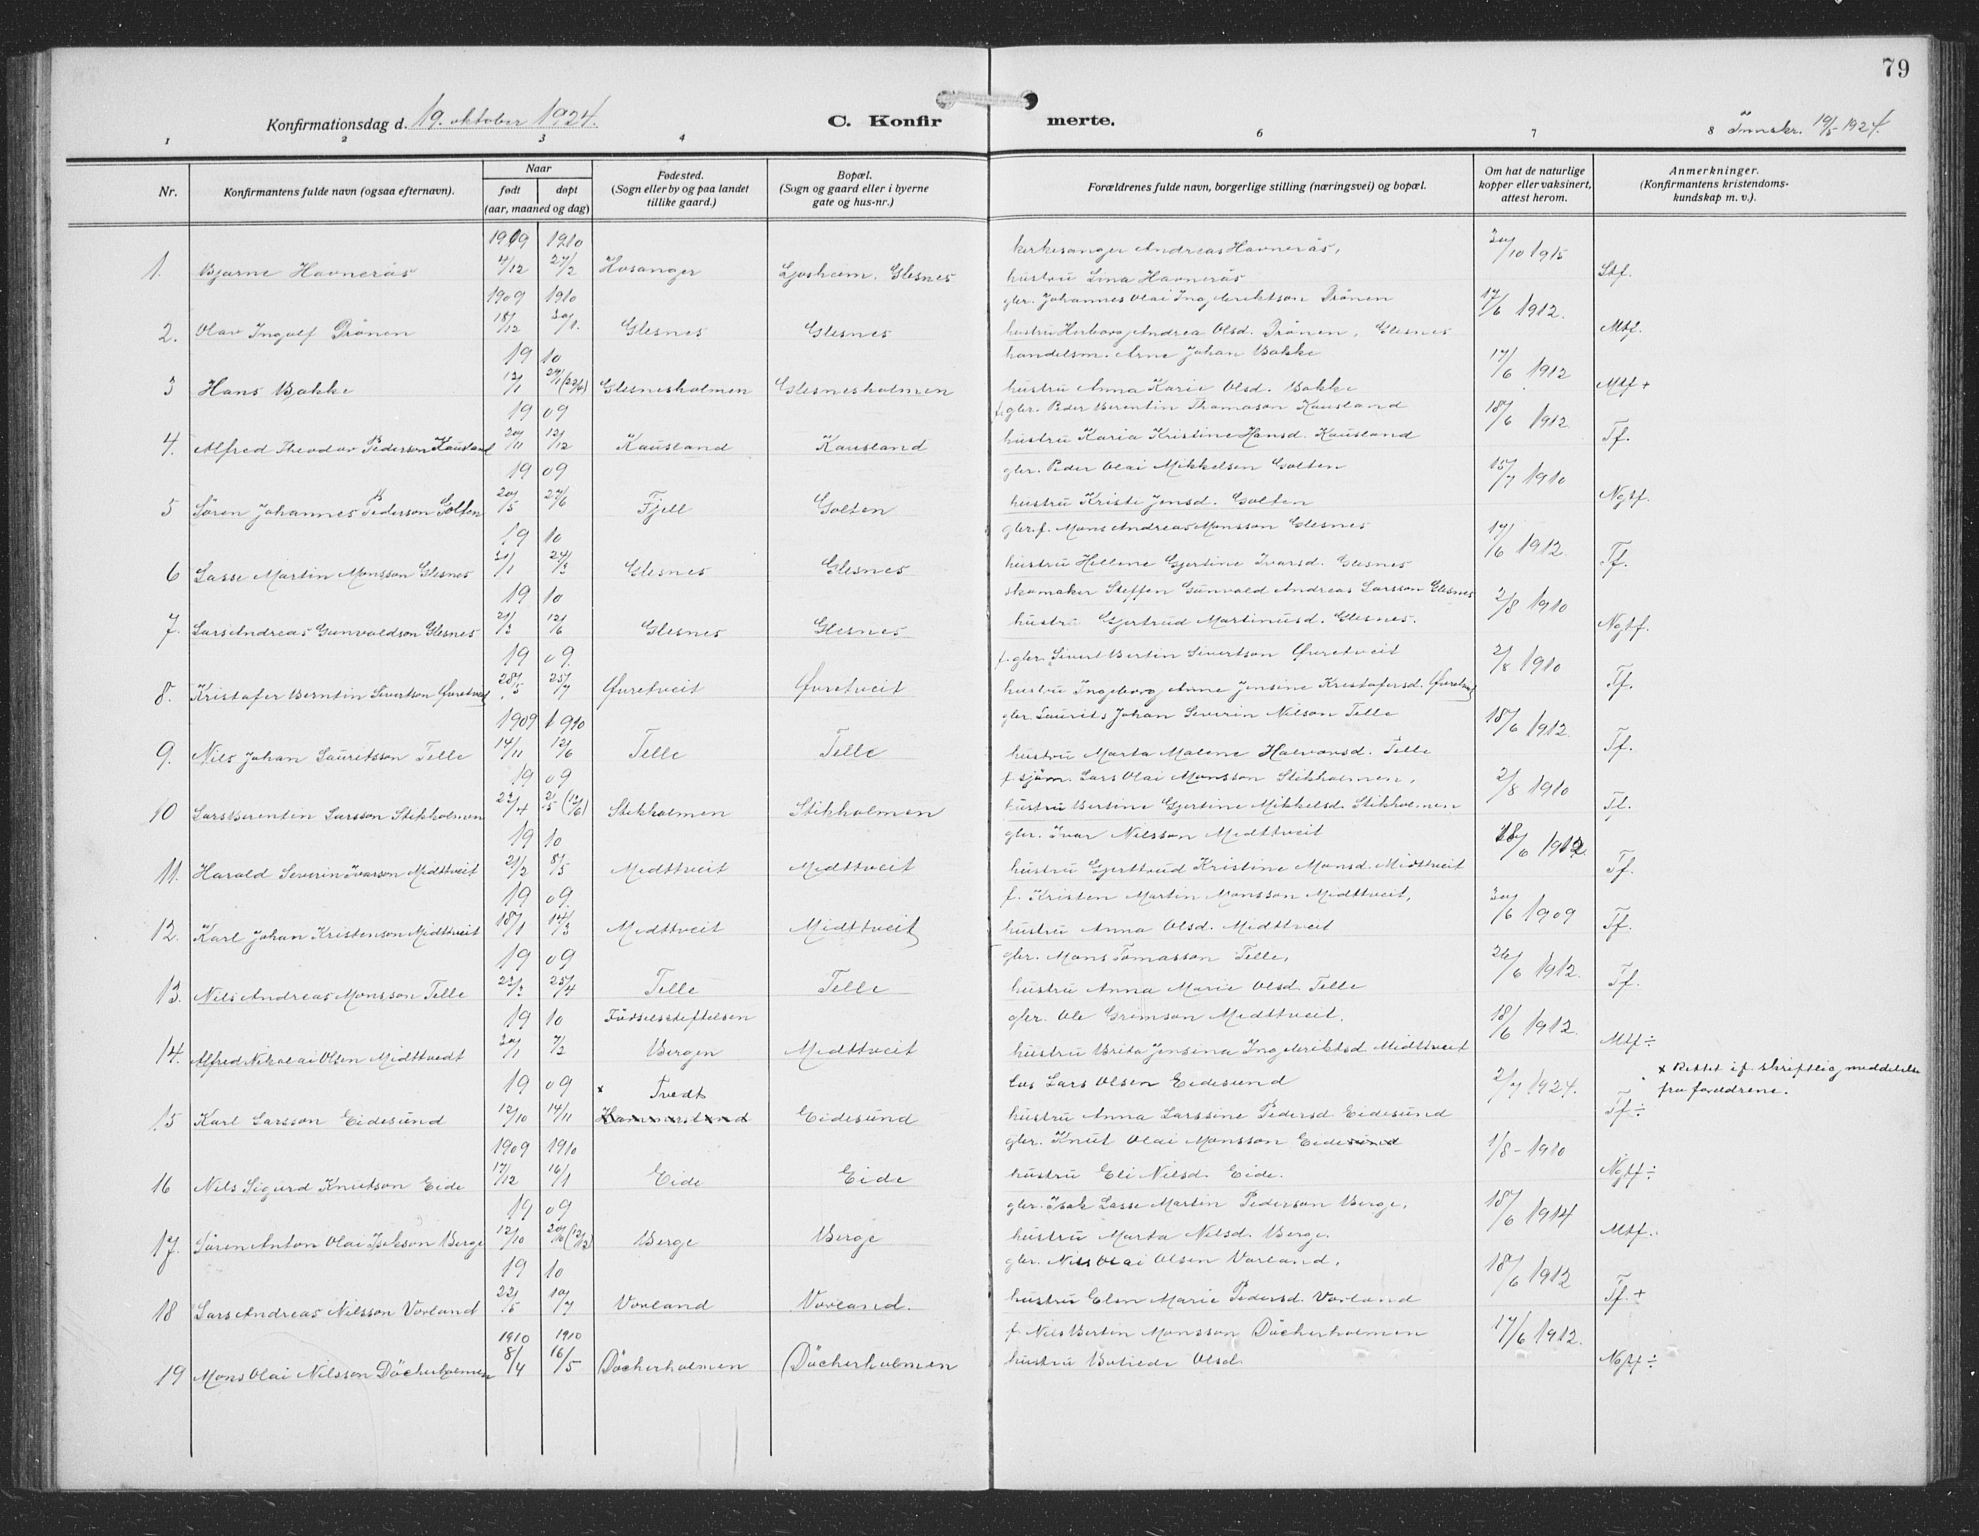 79
Konfirmationsdag d. 19. oktober 1924.
C. Konfirmerte.
Innskr. 19/5-1924.
1 2 3 4 6 7 8
Nr. Konfirmantens fulde navn (ogsaa efternavn). Naar født døpt (aar, maaned og dag) Fødested. (Sogn eller by og paa landet tillike gaard.) Bopæl. (Sogn og gaard eller i byerne gate og hus-nr.) Forældrenes fulde navn, borgerlige stilling (næringsvei) og bopæl. Om hat de naturlige kopper eller vaksinert, attest herom. Anmerkninger. (Konfirmantens kristendomskundskap m. v.).
1909 1910 kirkesanger Andreas Havnerås,
1. Bjarne Havnerås 4/12 27/2 Hosanger Ljosheim. Glesnes hustru Lina Havnerås 30/10 1915 Stf.
1909 1910 gbr. Johannes Olai Ingebriktson Trönen
2. Olav Ingolf Trönen 18/12 30/1. Glesnes Glesnes hustru Herborg Andrea Olsd. Trönen, Glesnes 17/6 1912. Mtf.
19 10 handelsm. Arne Johan Bakke
3 Hans Bakke 12/1 (22/6) Glesnesholmen Glesnesholmen hustru Anna Karie Olsd. Bakke 17/6 1912 Mtf +
19 09 f. gbr. Peder Berentin Thomason Kausland
4. Alfred Theodor Pederson Kausland 30/11 12/12 Kausland Kausland hustru Karia Kristine Hansd. Kausland 18/6 1912 Tf.
19 09 gbr. Peder Olai Mikkelsen Golten
5 Sören Johannes Pederson Golten 20/5 27/6 Fjell Golten hustru Kristi Jensd. Golten 15/7 1910 Ngtf.
19 10 gbr. f. Mons Andreas Monsson Glesnes
6 Lasse Martin Monsson Glesnes 31/1 24/3 Glesnes Glesnes hustru Hellene Gjertine Ivarsd. Glesnes 17/6 1912. Tf.
19 10 skomaker Steffen Gunvald Andreas Larsson Glesnes
7. Lars Andreas Gunvaldson Glesnes 21/3 12/6 Glesnes Glesnes hustru Gjertrud Martinusd. Glesnes. 2/8 1910 Ngtf.
19 09. f. gbr. Sivert Bertin Sivertson Øvretveit
8. Kristofer Berntin Sivertson Øvretveit 28/5 25/7 Øvretveit Øvretveit hustru Ingeborg Anne Jensine Kristofersd. Øvretveit 2/8 1910 Tf.
1909 1910 gbr. Laurits Johan Severin Nilson Telle
9. Nils Johan Lauritsson Telle 14/11 12/6 Telle Telle hustru Marta Malene Halvorsd. Telle 18/6 1912. Tf.
19 09 f. sjöm. Lars Olai Monsson Stikholmen,
10 Lars Berenten Larsson Stikholmen 23/4 2/5 (12/6) Stikholmen Stikholmen hustru Bertine Gjertine Mikkelsd. Stikholmen 2/8 1910 Tf.
19 10 gbr. Ivar Nilsson Midttveit
11. Harald Severin Ivarson Midttveit 21/2 8/5 Midttveit Midttveit hustru Gjerttrud Kristine Monsd. Midttveit 18/6 1912. Tf.
19 09. f. Kristen Martin Monsson Midttveit,
12. Karl Johan Kristenson Midttveit 18/1 14/3 Midttveit Midttveit hustru Anna Olsd. Midttveit 30/6 1909 Tf.
19 09 gbr. Mons Tomasson Telle,
13. Nils Andreas Monsson Telle 23/3 25/4 Telle Telle hustru Anna Marie Olsd. Telle 26/6 1912. Tf.
19 10 Fødselsstiftelsen gbr. Ole Grimson Midttveit.
14. Alfred Nikolai Olsen Midttvedt 30/1 7/2 Bergen Midttveit hustru Brita Jensina Ingebriktsd. Midttveit 18/6 1912. Mtf ÷
x Rettet if. skriftlig meddelelse fra foreldrene.
19 09 x Tvedt los Lars Olsen Eidesund
15 Karl Larsson Eidesund 12/10 14/11 Hammersland Eidesund hustru Anna Larssine Pedersd. Eidesund 2/7 1924. Tf ÷
1909 1910 gbr. Knut Olai Monsson Eidesund
16 Nils Sigurd Knutson Eide 17/12 16/1 Eide Eide hustru Eli Nilsd. Eide. 1/8 - 1910 Ngtf ÷
19 09 gbr. Isak Lasse Martin Pederson Berge,
17. Sören Anton Olai Isakson Berge 12/10 (12/12) Berge Berge hustru Marta Nilsd. Berge. 18/6 1914 Mtf.
19 10 gbr. Nils Olai Olsen Vorland,
18 Lars Andreas Nilsson Vorland 22/5 10/7 Vorland Vorland. hustru Elen Marie Pedersd. Vorland 18/6 1912 Tf. +
1910 1910 f. Nils Bertin Monsson Döcherholmen
19 Mons Olai Nilsson Döcherholmen 8/4 16/5 Döcherholmen Döcherholmen hustru Botilde Olsd. 17/6 1912. Ngtf ÷